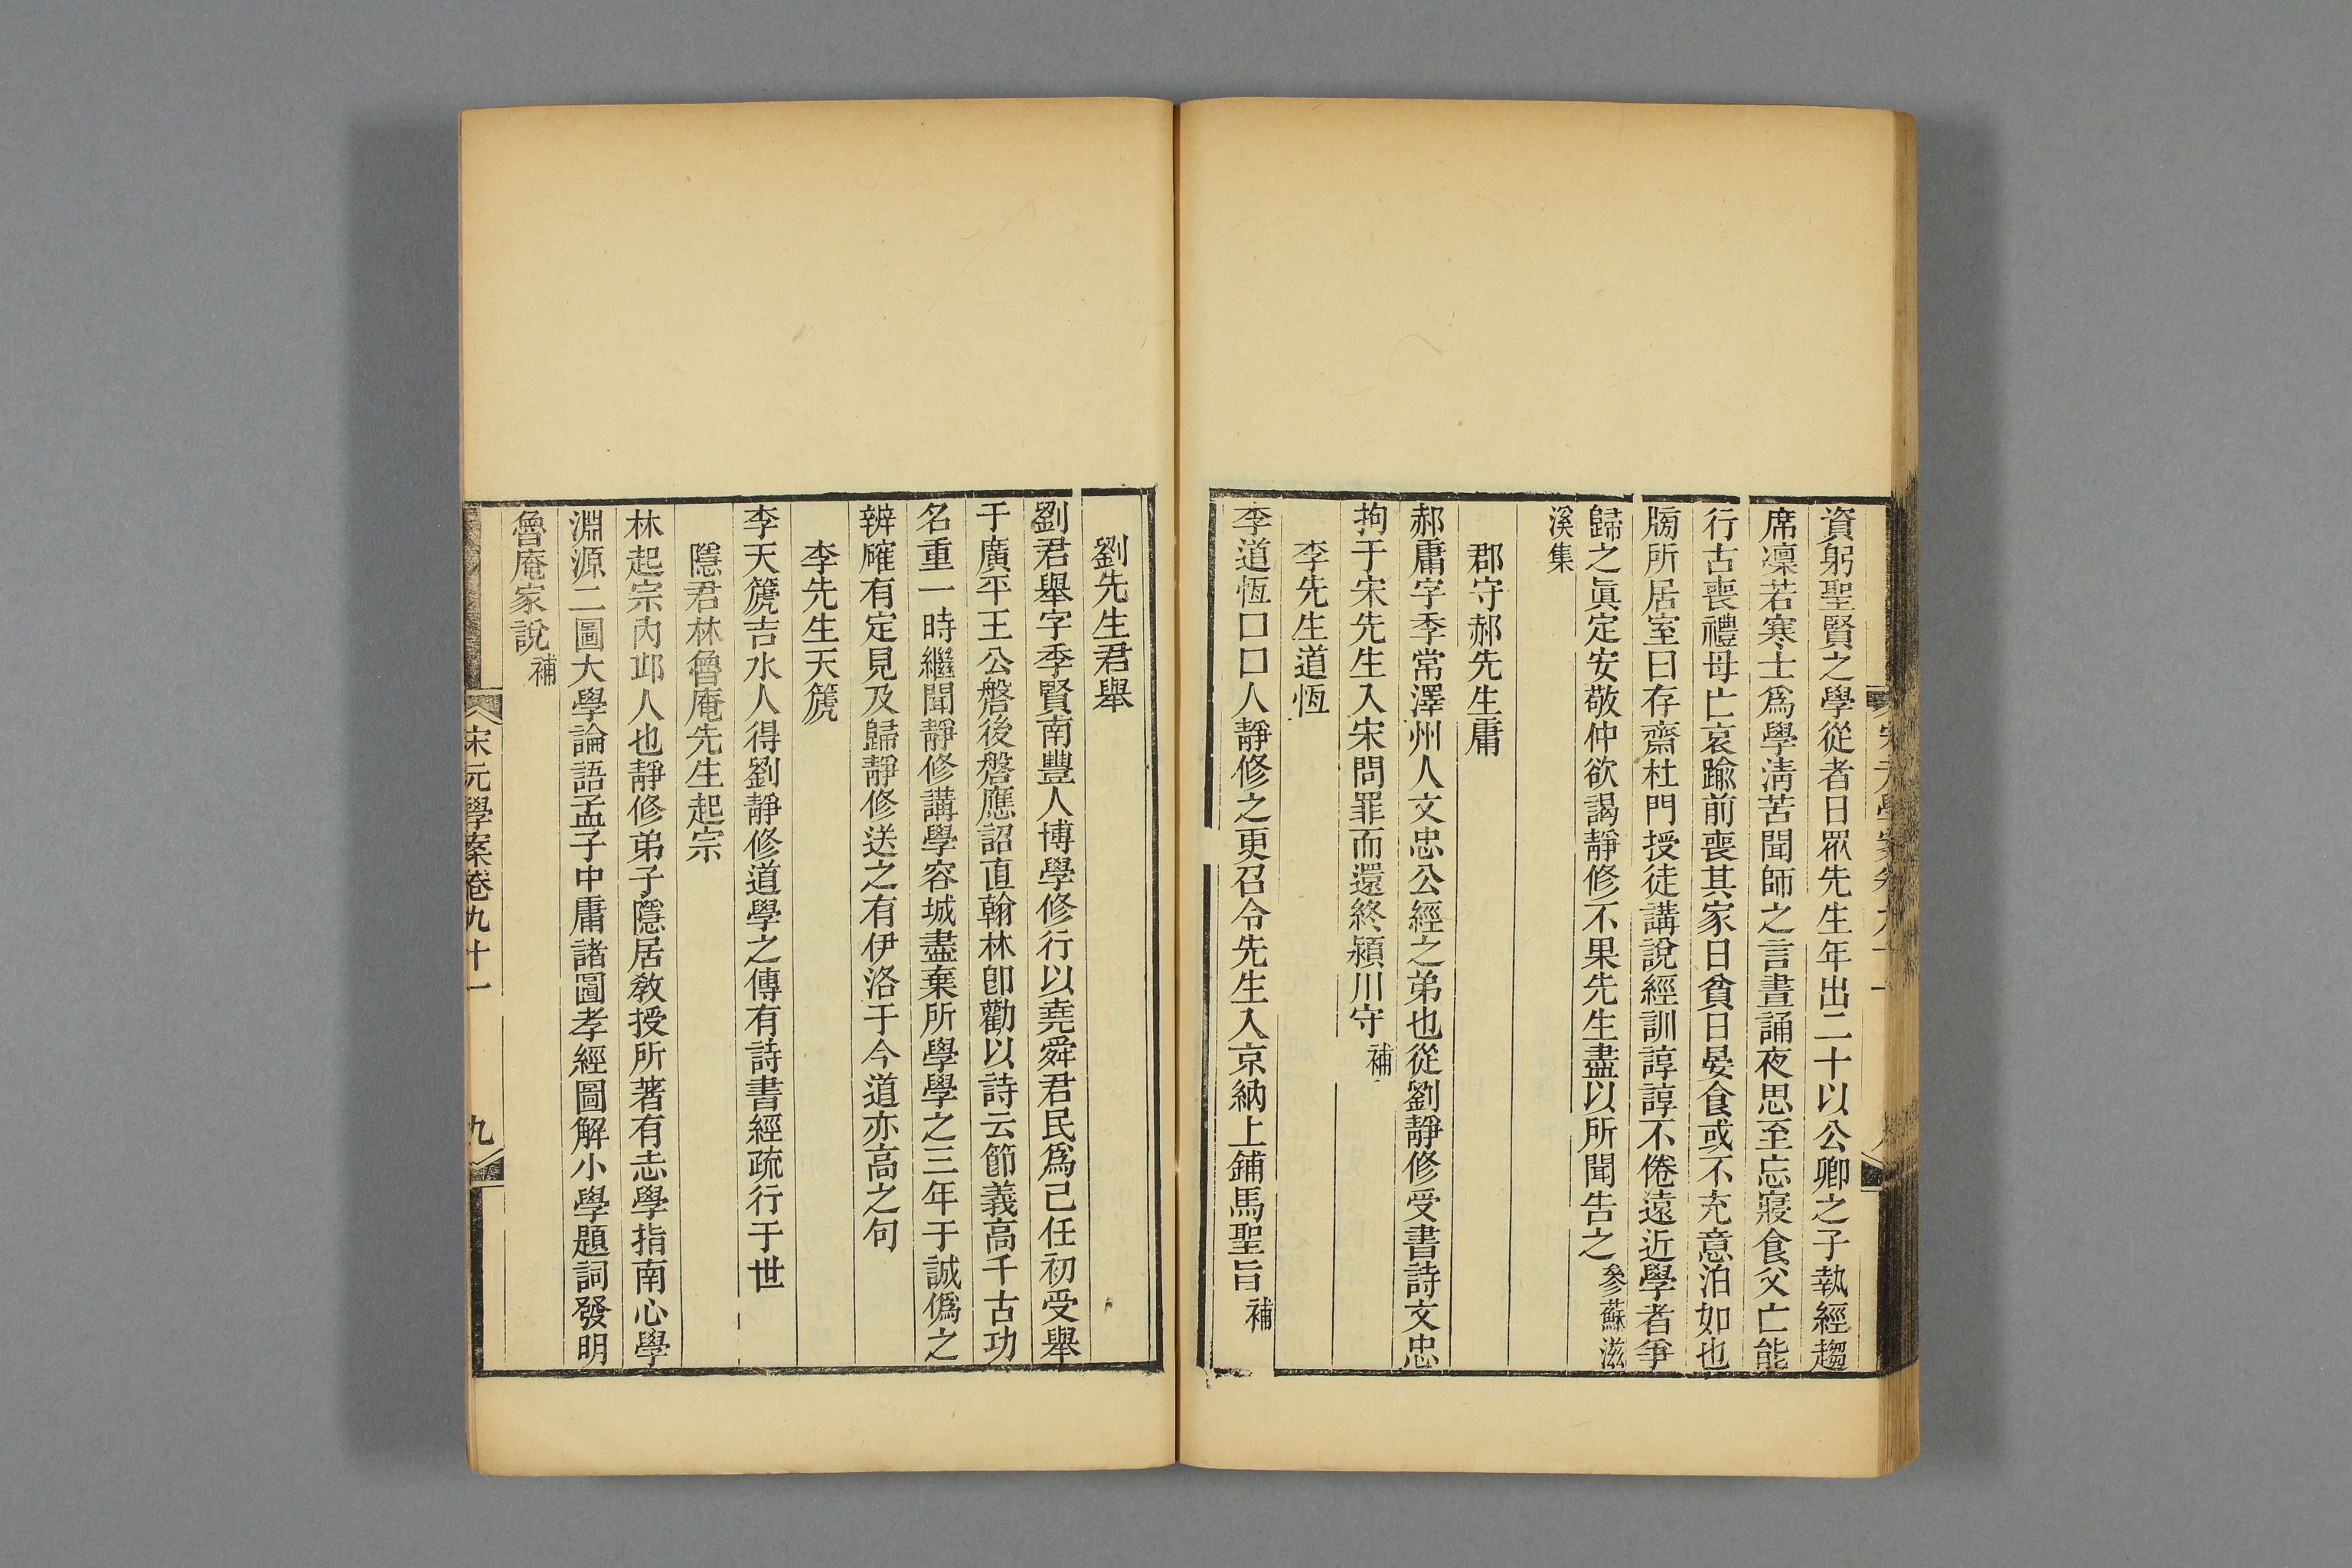 資躬聖賢之學從者日眾先生年出二十以公卿之子執經趨
席凜若寒士爲學淸苦聞師之言晝誦夜思至忘寢食父亡能
行古喪禮母亡哀踰前喪其家日貧日晏食或不充意泊如也
牓所居室曰存齋杜門授徒講說經訓諄諄不倦遠近學者爭
歸之眞定安敬仲欲謁靜修不果先生盡以所聞告之參蘇滋
溪集
郡守郝先生庸
郝庸字季常澤州人文忠公經之弟也從劉靜修受書詩文忠
拘于宋先生入宋問罪而還終潁川守補
李先生道恆
李道恆口口人靜修之更召令先生入京納上鋪馬聖旨補
劉先生君舉
劉君舉字季賢南豐人博學修行以堯舜君民爲己任初受舉
于廣平王公磐後磐應詔直翰林卽勸以詩云節義高千古功
名重一時繼聞靜修講學容城盡棄所學學之三年于誠僞之
辨確有定見及歸靜修送之有伊洛于今道亦高之句
李先生天篪
李天篪吉水人得劉靜修道學之傳有詩書經疏行于世
隱君林魯庵先生起宗
林起宗內邱人也靜修弟子隱居敎授所著有志學指南心學
淵源二圖大學論語孟子中庸諸圖孝經圖解小學題詞發明
魯庵家說補
宋元學案卷九十一
九